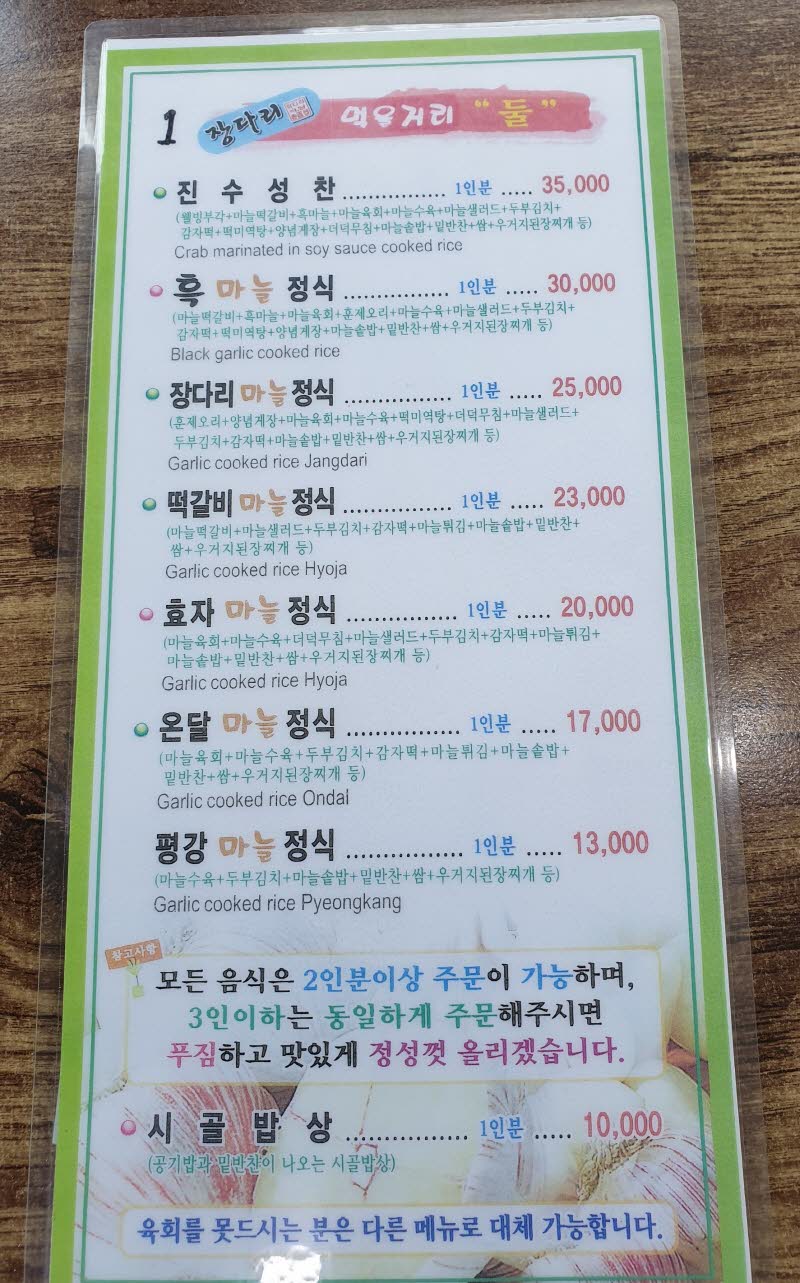 1 장다리 먹을거리 "둘"
진 수 성 찬 ................ 1인분 ..... 35,000
(웰빙부각+마늘떡갈비+흑마늘+마늘육회+마늘수육+마늘샐러드+두부김치+
감자떡+떡미역탕+양념게장+더덕무침+마늘솥밥+밑반찬+쌈+우거지된장찌개 등)
Crab marinated in soy sauce cooked rice
흑 마늘 정식 ................ 1인분 ..... 30,000
(마늘떡갈비+흑마늘+마늘육회+훈제오리+마늘수육+마늘샐러드+두부김치+
감자떡+떡미역탕+양념게장+마늘솥밥+밑반찬+쌈+우거지된장찌개 등)
Black garlic cooked rice
장다리 마늘 정식 ................ 1인분 ..... 25,000
(훈제오리+양념게장+마늘육회+마늘수육+떡미역탕+더덕무침+마늘샐러드+
두부김치+감자떡+마늘솥밥+밑반찬+쌈+우거지된장찌개 등)
Garlic cooked rice Jangdari
떡갈비 마늘 정식 ................ 1인분 ..... 23,000
(마늘떡갈비+마늘샐러드+두부김치+감자떡+마늘튀김+마늘솥밥+밑반찬+
쌈+우거지된장찌개 등)
Garlic cooked rice Hyoja
효자 마늘 정식 ................ 1인분 ..... 20,000
(마늘육회+마늘수육+더덕무침+마늘샐러드+두부김치+감자떡+마늘튀김+
마늘솥밥+밑반찬+쌈+우거지된장찌개 등)
Garlic cooked rice Hyoja
온달 마늘 정식 ................ 1인분 ..... 17,000
(마늘육회+마늘수육+두부김치+감자떡+마늘튀김+마늘솥밥+
밑반찬+쌈+우거지된장찌개 등)
Garlic cooked rice Ondal
평강 마늘 정식 ................ 1인분 ..... 13,000
(마늘수육+두부김치+마늘솥밥+밑반찬+쌈+우거지된장찌개 등)
Garlic cooked rice Pyeongkang
참고사항
모든 음식은 2인분이상 주문이 가능하며,
3인이하는 동일하게 주문해주시면
푸짐하고 맛있게 정성껏 올리겠습니다.
시 골 밥 상 ................ 1인분 ..... 10,000
(공기밥과 밑반찬이 나오는 시골밥상)
육회를 못드시는 분은 다른 메뉴로 대체 가능합니다.